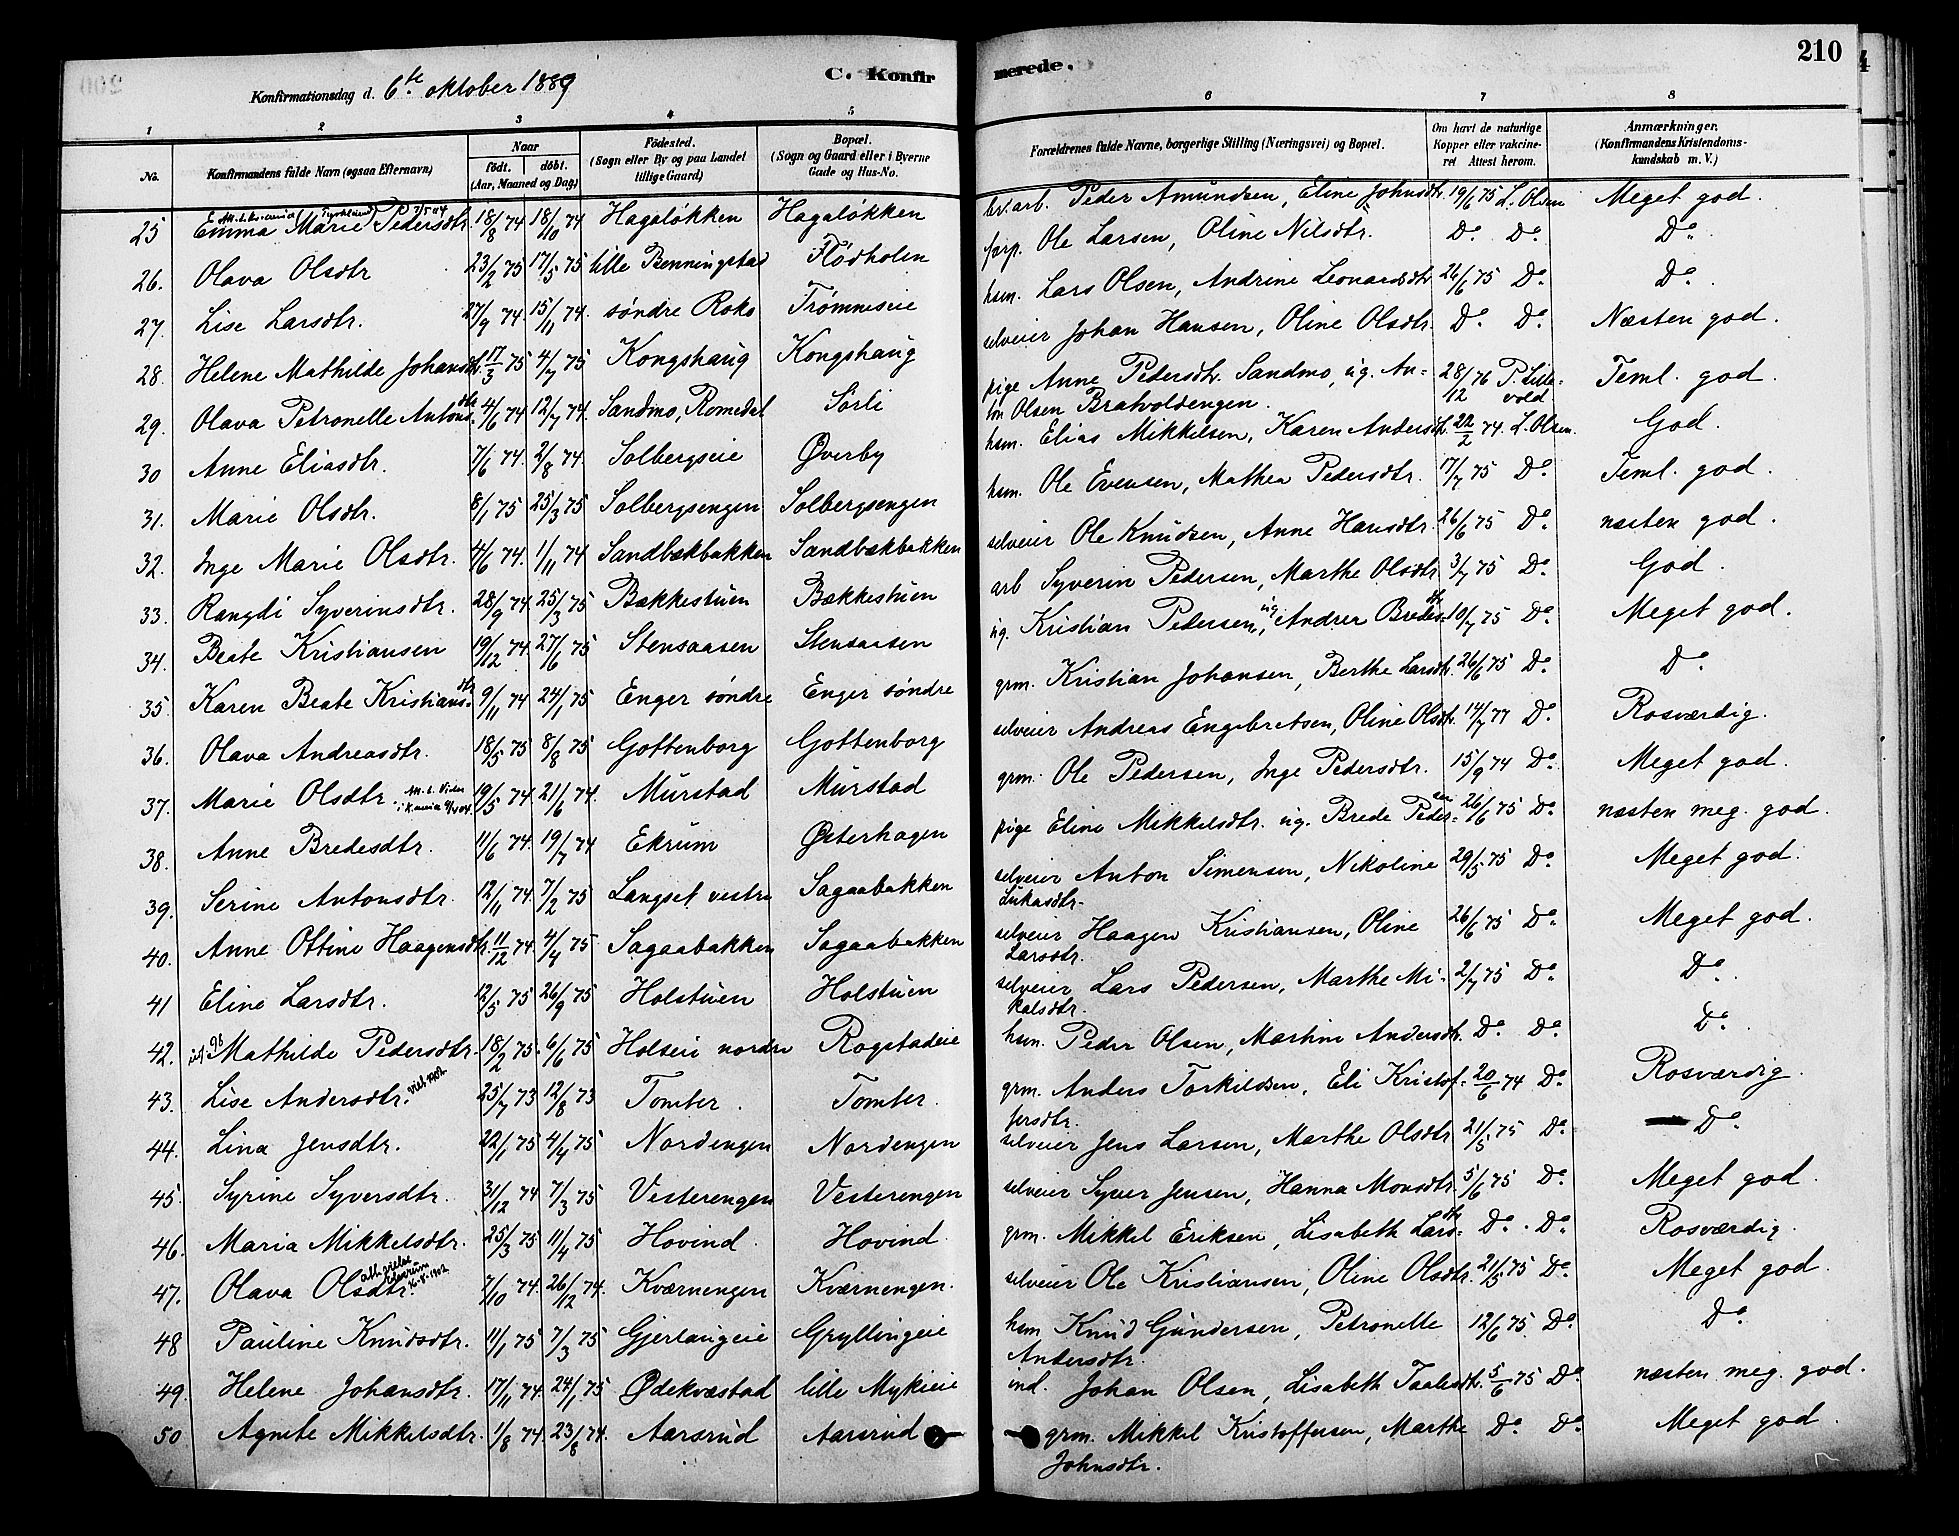 210
C. Konfir
merede.
Konfirmationsdag d. 6te oktober 1889
1 2 3 4 5 6 7 8
No. Konfirmandens fulde Navn (ogsaa Efternavn) Naar født. døbt. (Aar, Maaned og Dag) Fødested. (Sogn eller By og paa Landet tillige Gaard) Bopæl. (Sogn og Gaard eller i Byerne Gade og Hus-No. Forældrenes fulde Navne, borgerlige Stilling (Næringsvei) og Bopæl. Om havt de naturlige Kopper eller vakcineret Attest herom. Anmærkninger. (Konfirmandens Kristendomskundskab m. V.)
25 Emma Marie Pedersdtr. 18/8 74 18/10 74 Hagaløkken Hagaløkken br.arb. Peder Amundsen, Eline Johnsdtr. 19/6 75 L. Olsen Meget god.
26. Olava Olsdtr 23/2 75 17/5 75 lille Benningstad Flødholen forp. Ole Larsen, Oline Nilsdtr. Do. Do. Do.
27. Lise Larsdtr. 27/9 74. 15/11 74. søndre Roko Trømmeseie hsm. Lars Olsen, Andrine Leonardsdtr 26/6 75 Do. Do.
28. Helene Mathilde Johansdtr. 17/3 75 4/7 75 Kongshaug Kongshaug selveier Johan Hansen, Oline Olsdtr. Do. Do. Næsten god.
29. Olava Petronelle Antonsdtr. 4/6 74 12/7 74. Sandmo, Romedal Sørli pige Anne Pedersdtr. Sandmo, ug. Anton Olsen Bratvoldengen. 28/12 76 P. Lillevold Teml. god.
30 Anne Eliasdtr. 7/6 74. 2/8 74. Solbergseie Øverby hsm. Elias Mikkelsen, Karen Andersdtr. 22/2 74. L. Olsen. God.
31. Marie Olsdtr. 8/1 75 25/3 75 Solbergsengen Solbergsengen hsm. Ole Evensen, Mathea Pedersdtr. 17/7 75 Do. Teml. god.
32. Inge Marie Olsdtr. 4/6 74. 1/11 74 Sandbækbakken Sandbækbakken selveier Ole Knudsen, Anne Hansdtr. 26/6 75 Do. næsten god.
33. Rangdi Syverinsdtr. 28/9 74. 25/3 75 Bækkestuen Bækkestuen arb Syverin Pedersen, Marthe Olsdtr. 3/7 75 Do. God.
34. Beate Kristiansen 19/12 74. 27/6 75 Stensaasen Stensaasen ug. Kristian Pedersen, ug. Andrea Bredesdtr. 10/7 75 Do. Meget god.
35. Karen Beate Kristiansdtr. 9/11 74 24/1 75 Enger søndre Enger søndre grm. Kristian Johansen, Berthe Larsdtr. 26/6 75 Do. Do.
36. Olava Andreasdtr. 18/5 75 8/8 75 Gottenborg Gottenborg selveier Andreas Engebretsen, Oline Olsdtr. 14/7 77 Do. Rosværdig.
37. Marie Olsdtr. 19/5 74. 21/6 74. Murstad Murstad grm. Ole Pedersen, Inge Pedersdtr. 15/9 74 Do. Meget god.
38. Anne Bredesdtr. 11/6 74. 19/7 74 Ekrum Østerhagen pige Eline Mikkelsdtr. ug. Brede Pedersen 26/6 75 Do. næsten meg. god.
39. Serine Antonsdtr. 12/11 74. 7/2 75 Langset vestre Sagaabakken selveier Anton Simensen, Nikoline Lukasdtr. 29/5 75 Do. Meget god.
40. Anne Ottine Haagensdtr. 11/12 74 4/4 75 Sagaabakken Sagaabakken selveier Haagen Kristiansen, Oline Larsdtr. 26/6 75 Do. Meget god.
41 Eline Larsdtr. 12/5 75 26/9 75 Holstuen Holstuen selveier Lars Pedersen, Marthe Mikalsdtr. 2/7 75 Do. Do.
42. Mathilde Pedersdtr. 18/2 75. 6/6 75 Holseie nordre Rogstadeie hsm. Peder Olsen, Martine Andersdtr. Do. Do. Do.
43. Lise Andersdtr. 25/7 73 12/8 73 Tomter. Tomter. grm. Anders Torkildsen, Eli Kristoffersdtr. 20/6 74 Do. Rosværdig.
44. Lina Jensdtr. 22/1 75 4/4 75 Nordengen Nordengen selveier Jens Larsen, Marthe Olsdtr. 21/5 75 Do. Do.
45. Syrine Syversdtr. 31/12 74 7/3 75 Vesterengen Vesterengen selveier Syver Jensen, Hanna Monsdtr. 5/6 75 Do. Meget god.
46. Maria Mikkelsdtr. 25/3 75 11/4 75 Hovind. Hovind. grm. Mikkel Eriksen, Lisabeth Larsdtr. Do. Do. Rosværdig.
47. Olava Olsdtr. 7/10 74. 26/12 74. Kværnengen Kværnengen. selveier Ole Kristiansen, Oline Olsdtr. 21/5 75 Do. Meget god.
48 Pauline Knudsdtr. 11/1 75 7/3 75 Gjerlaugeie Gryllingeie hsm Knud Gundersen, Petronelle Andersdtr. 12/6 75 Do. Do.
49. Helene Johansdtr. 17/11 74. 24/1 75 Ødekvæstad lille Mykieie ind. Johan Olsen, Lisabeth Taalesdtr. 5/6 75 Do. næsten meg. god.
50 Agnete Mikkelsdtr. 1/8 74. 23/8 74. Aarsrud Aarsrud grm. Mikkel Kristoffersen, Marthe Johnsdtr. Do. Do. Meget god.